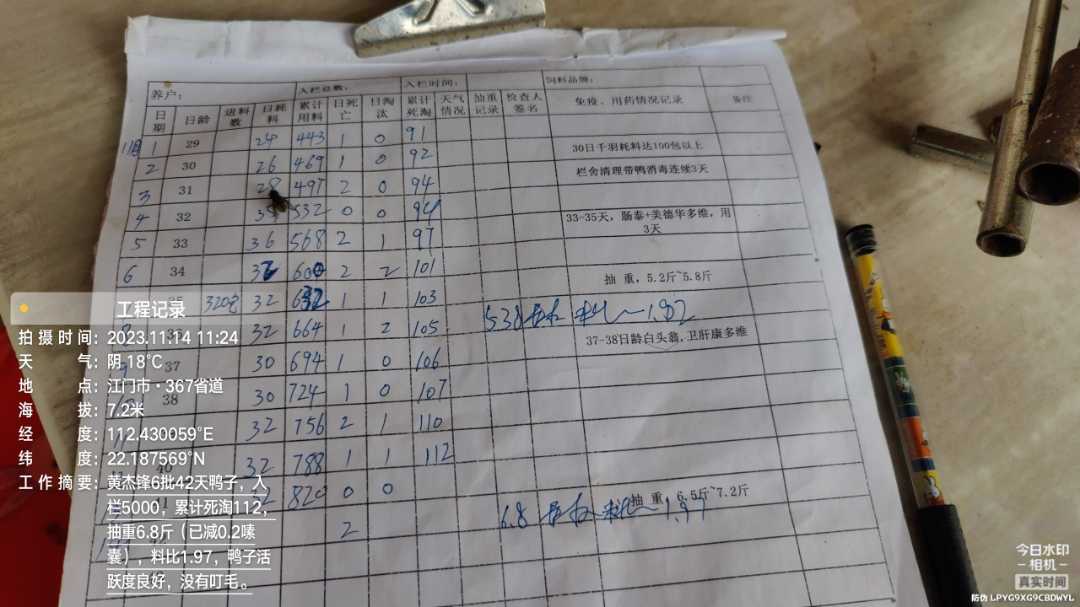 养户： 入栏总数： 入栏时间： 饲料品牌：
日期 日龄 进料数 日耗料 累计用料 日死亡 日淘汰 累计死淘 天气情况 抽重记录 检查人签名 免疫、用药情况记录 备注
11月1 29 24 443 1 0 91
30日千羽耗料达100包以上
2 30 26 469 1 0 92
栏舍清理带鸭消毒连续3天
3 31 28 497 2 0 94
4 32 35 532 0 0 94
33-35天，肠泰+美德华多维，用
3天
5 33 36 568 2 1 97
6 34 32 600 2 2 101
抽 重，5.2斤~5.8斤
320包 32 632 1 1 103
5.38 料 1.82
32 664 1 2 105
37-38日龄白头翁，卫肝康多维
37 30 694 1 0 106
38 30 724 1 0 107
32 756 2 1 110
40 32 788 1 1 112
32 820 0 0
抽 重，6.5斤~7.2斤
6.8 料 1.97
2
工程记录
拍摄时间：2023.11.14 11:24
天 气：阴 18℃
地 点：江门市·367省道
海 拔：7.2米
经 度：112.430059°E
纬 度：22.187569°N
工作摘要：黄杰锋6批42天鸭子，入
栏5000，累计死淘112，
抽重6.8斤（已减0.2嗉
囊），料比1.97，鸭子活
跃度良好，没有叮毛。
今日水印
相机
真实时间
防伪 LPYG9XG9CBDWYL